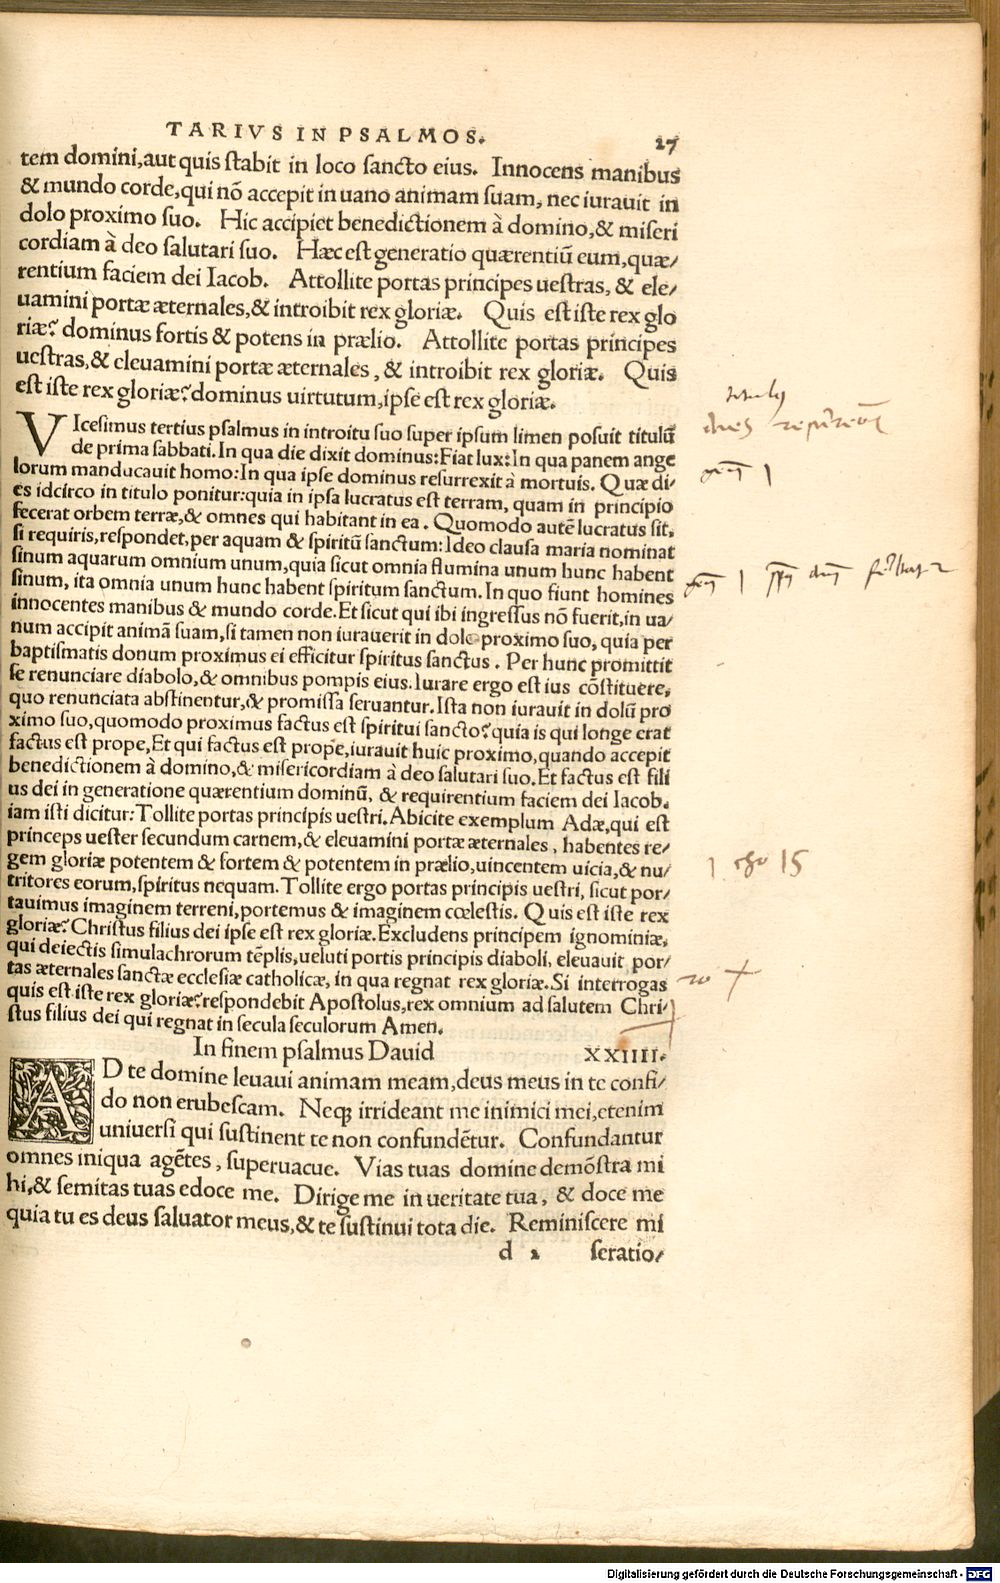 TARIVS IN PSALMOS. 27
tem domini,aut quis stabit in loco sancto eius. Innocens manibus
& mundo corde,qui nõ accepit in uano animam suam, nec iurauit in
dolo proximo suo. Hic accipiet benedictionem à domino,& miseri
cordiam à deo salutari suo. Hæc est generatio quærentiũ eum,quæ/
rentium faciem dei Iacob. Attollite portas principes uestras, & ele/
uamini portæ æternales,& introibit rex gloriæ. Quis est iste rex glo
riæ? dominus fortis & potens in prælio. Attollite portas principes
uestras,& eleuamini portæ æternales, & introibit rex gloriæ. Quis
est iste rex gloriæ? dominus uirtutum,ipse est rex gloriæ.
VIcesimus tertius psalmus in introitu suo super ipsum limen posuit titulũ
de prima sabbati. In qua die dixit dominus: Fiat lux: In qua panem ange
lorum manducauit homo: In qua ipse dominus resurrexit à mortuis. Quæ di/
es idcirco in titulo ponitur: quia in ipsa lucratus est terram, quam in principio
fecerat orbem terræ,& omnes qui habitant in ea. Quomodo autẽ lucratus sit,
si requiris,respondet,per aquam & spiritũ sanctum: Ideo clausa maria nominat
sinum aquarum omnium unum,quia sicut omnia flumina unum hunc habent
sinum, ita omnia unum hunc habent spiritum sanctum. In quo fiunt homines
innocentes manibus & mundo corde. Et sicut qui ibi ingressus nõ fuerit,in ua/
num accipit animã suam,si tamen non iurauerit in dolo proximo suo, quia per
baptismatis donum proximus ei efficitur spiritus sanctus. Per hunc promittit
se renunciare diabolo,& omnibus pompis eius. Iurare ergo est ius cõstituere,
quo renunciata abstinentur,& promissa seruantur. Ista non iurauit in dolũ pro
ximo suo,quomodo proximus factus est spiritui sancto? quia is qui longe erat
factus est prope, Et qui factus est prope,iurauit huic proximo,quando accepit
benedictionem à domino,& misericordiam à deo salutari suo. Et factus est fili
us dei in generatione quærentium dominũ, & requirentium faciem dei Iacob.
iam isti dicitur: Tollite portas principis uestri. Abicite exemplum Adæ,qui est
princeps uester secundum carnem,& eleuamini portæ æternales, habentes re/
gem gloriæ potentem & fortem & potentem in prælio,uincentem uicia,& nu/
tritores eorum,spiritus nequam. Tollite ergo portas principis uestri, sicut por/
tauimus imaginem terreni,portemus & imaginem cœlestis. Quis est iste rex
gloriæ? Christus filius dei ipse est rex gloriæ. Excludens principem ignominiæ,
qui deiectis simulachrorum tẽplis,ueluti portis principis diaboli, eleuauit por/
tas æternales sanctæ ecclesiæ catholicæ, in qua regnat rex gloriæ. Si interrogas
quis est iste rex gloriæ? respondebit Apostolus,rex omnium ad salutem Chri/
stus filius dei qui regnat in secula seculorum Amen.
In finem psalmus Dauid XXIIII.
AD te domine leuaui animam meam,deus meus in te confi/
do non erubescam. Neqꝫ irrideant me inimici mei,etenim
uniuersi qui sustinent te non confundẽtur. Confundantur
omnes iniqua agẽtes, superuacue. Vias tuas domine demõstra mi
hi,& semitas tuas edoce me. Dirige me in ueritate tua, & doce me
quia tu es deus saluator meus,& te sustinui tota die. Reminiscere mi
d 2 seratio/
15
Digitalisierung gefördert durch die Deutsche Forschungsgemeinschaft - DFG